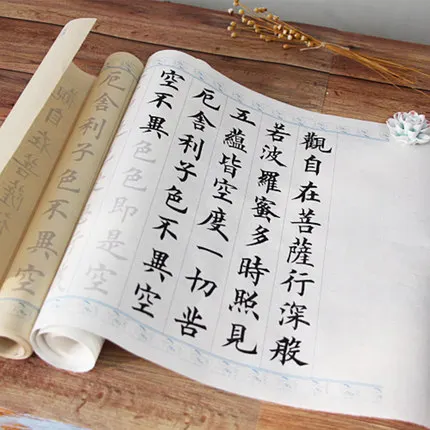 觀自在菩薩行深般
若波羅蜜多時照見
五蘊皆空度一切苦
厄舍利子色不異空
空不異色色即是空
厄舍利子色不異空
觀自在菩薩